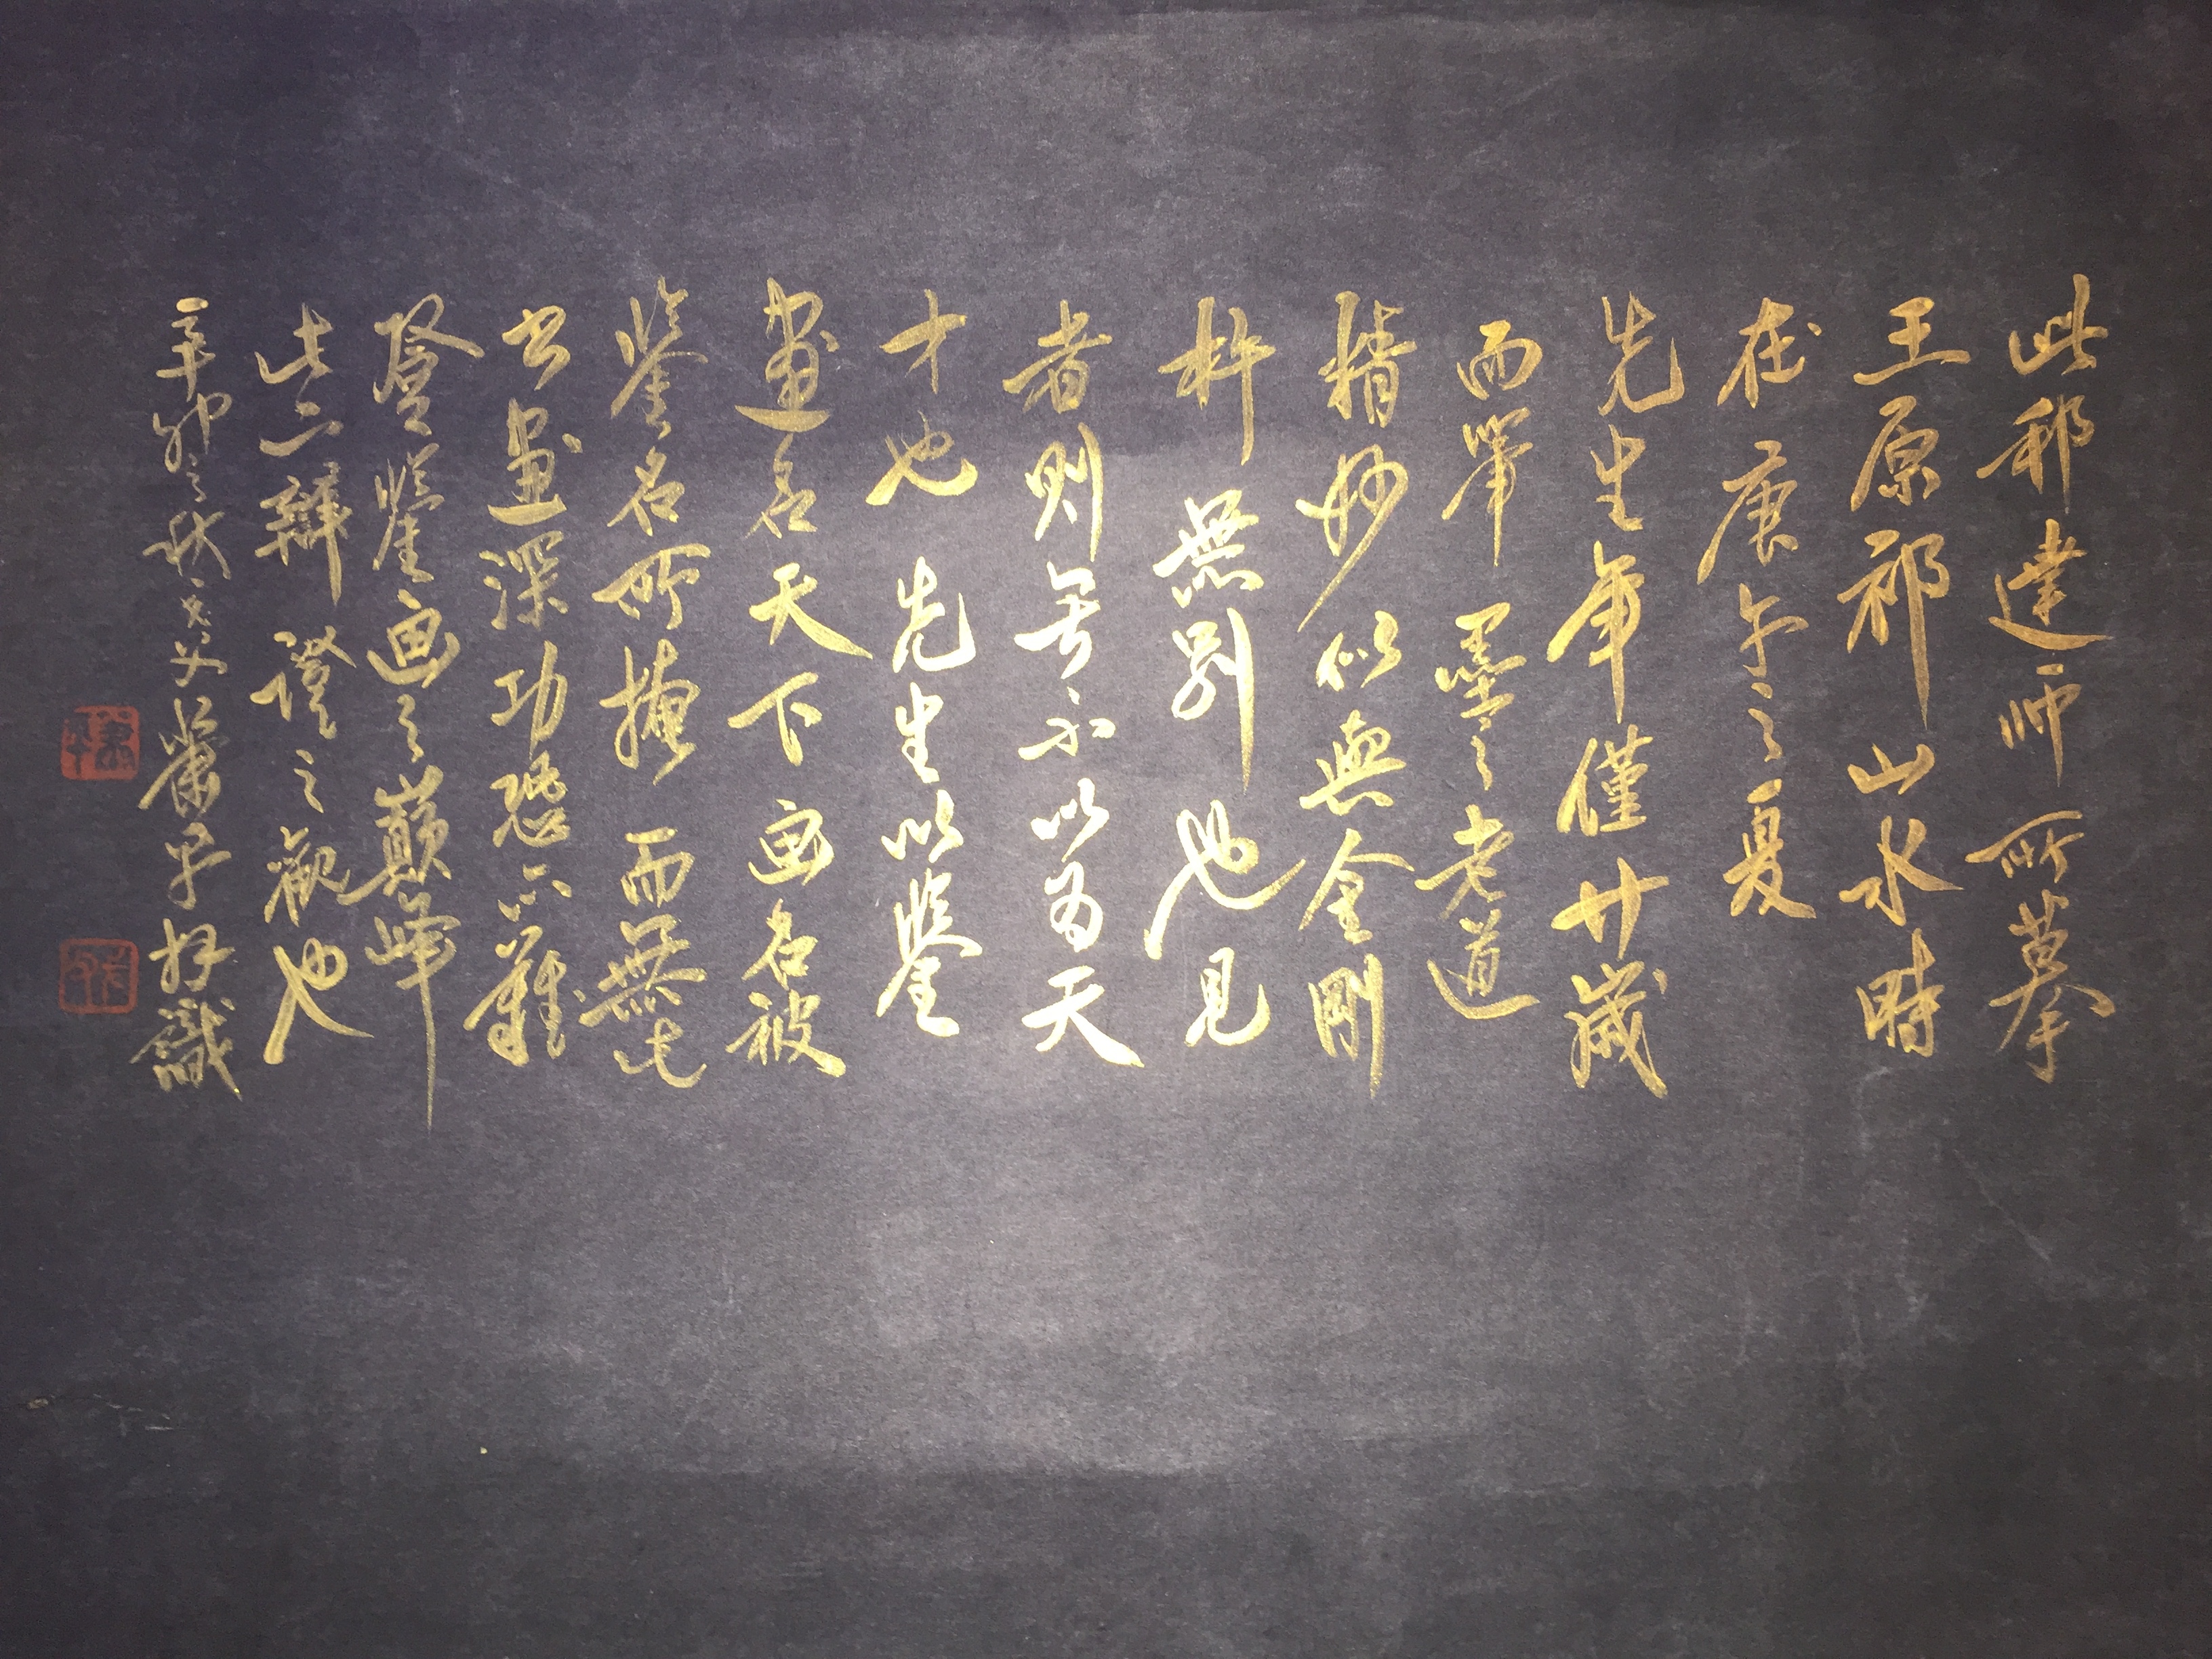 此邢達師所摹
王原祁山水時
在庚午之夏
先生年僅廿歲
而筆墨之老道
精妙似與金剛
杵無別也見
者則無不以為天
才也先生以鑒
畫名天下畫名被
鑒名所掩而無此
書畫深功恐亦難
登鑒画之巔峰
此二辯證之觀也
辛卯之秋蕭平拜識